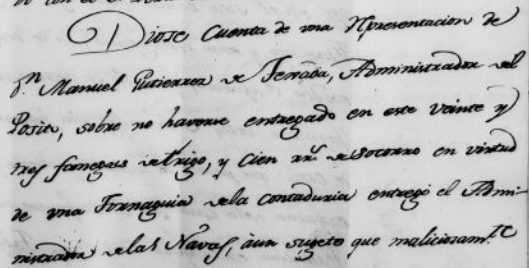 Diose Cuenta de una Rpresentacion de
Dn. Manuel Gutierrez de Terrada, Administrador del
Posito, sobre no haverse entregado en este veinte y
tres fanegas de trigo, y Cien rrs. de socorro en virtud
de una Tornaguia de la Contaduria entregó el Admi-
nistrador de las Navas, à un sugeto que maliciosamte.